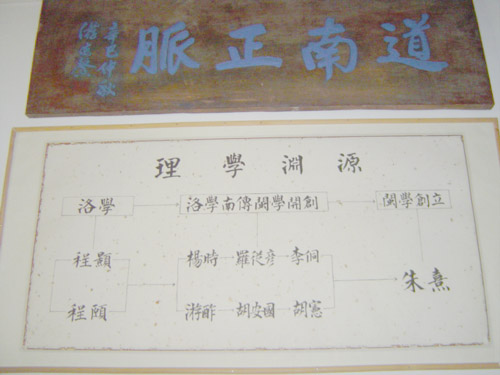 道南正脈
辛巳仲秋
理學淵源
洛學 洛學南傳閩學開創 閩學創立
程顥 楊時 羅從彥 李侗
朱熹
程頤 游酢 胡安國 胡憲